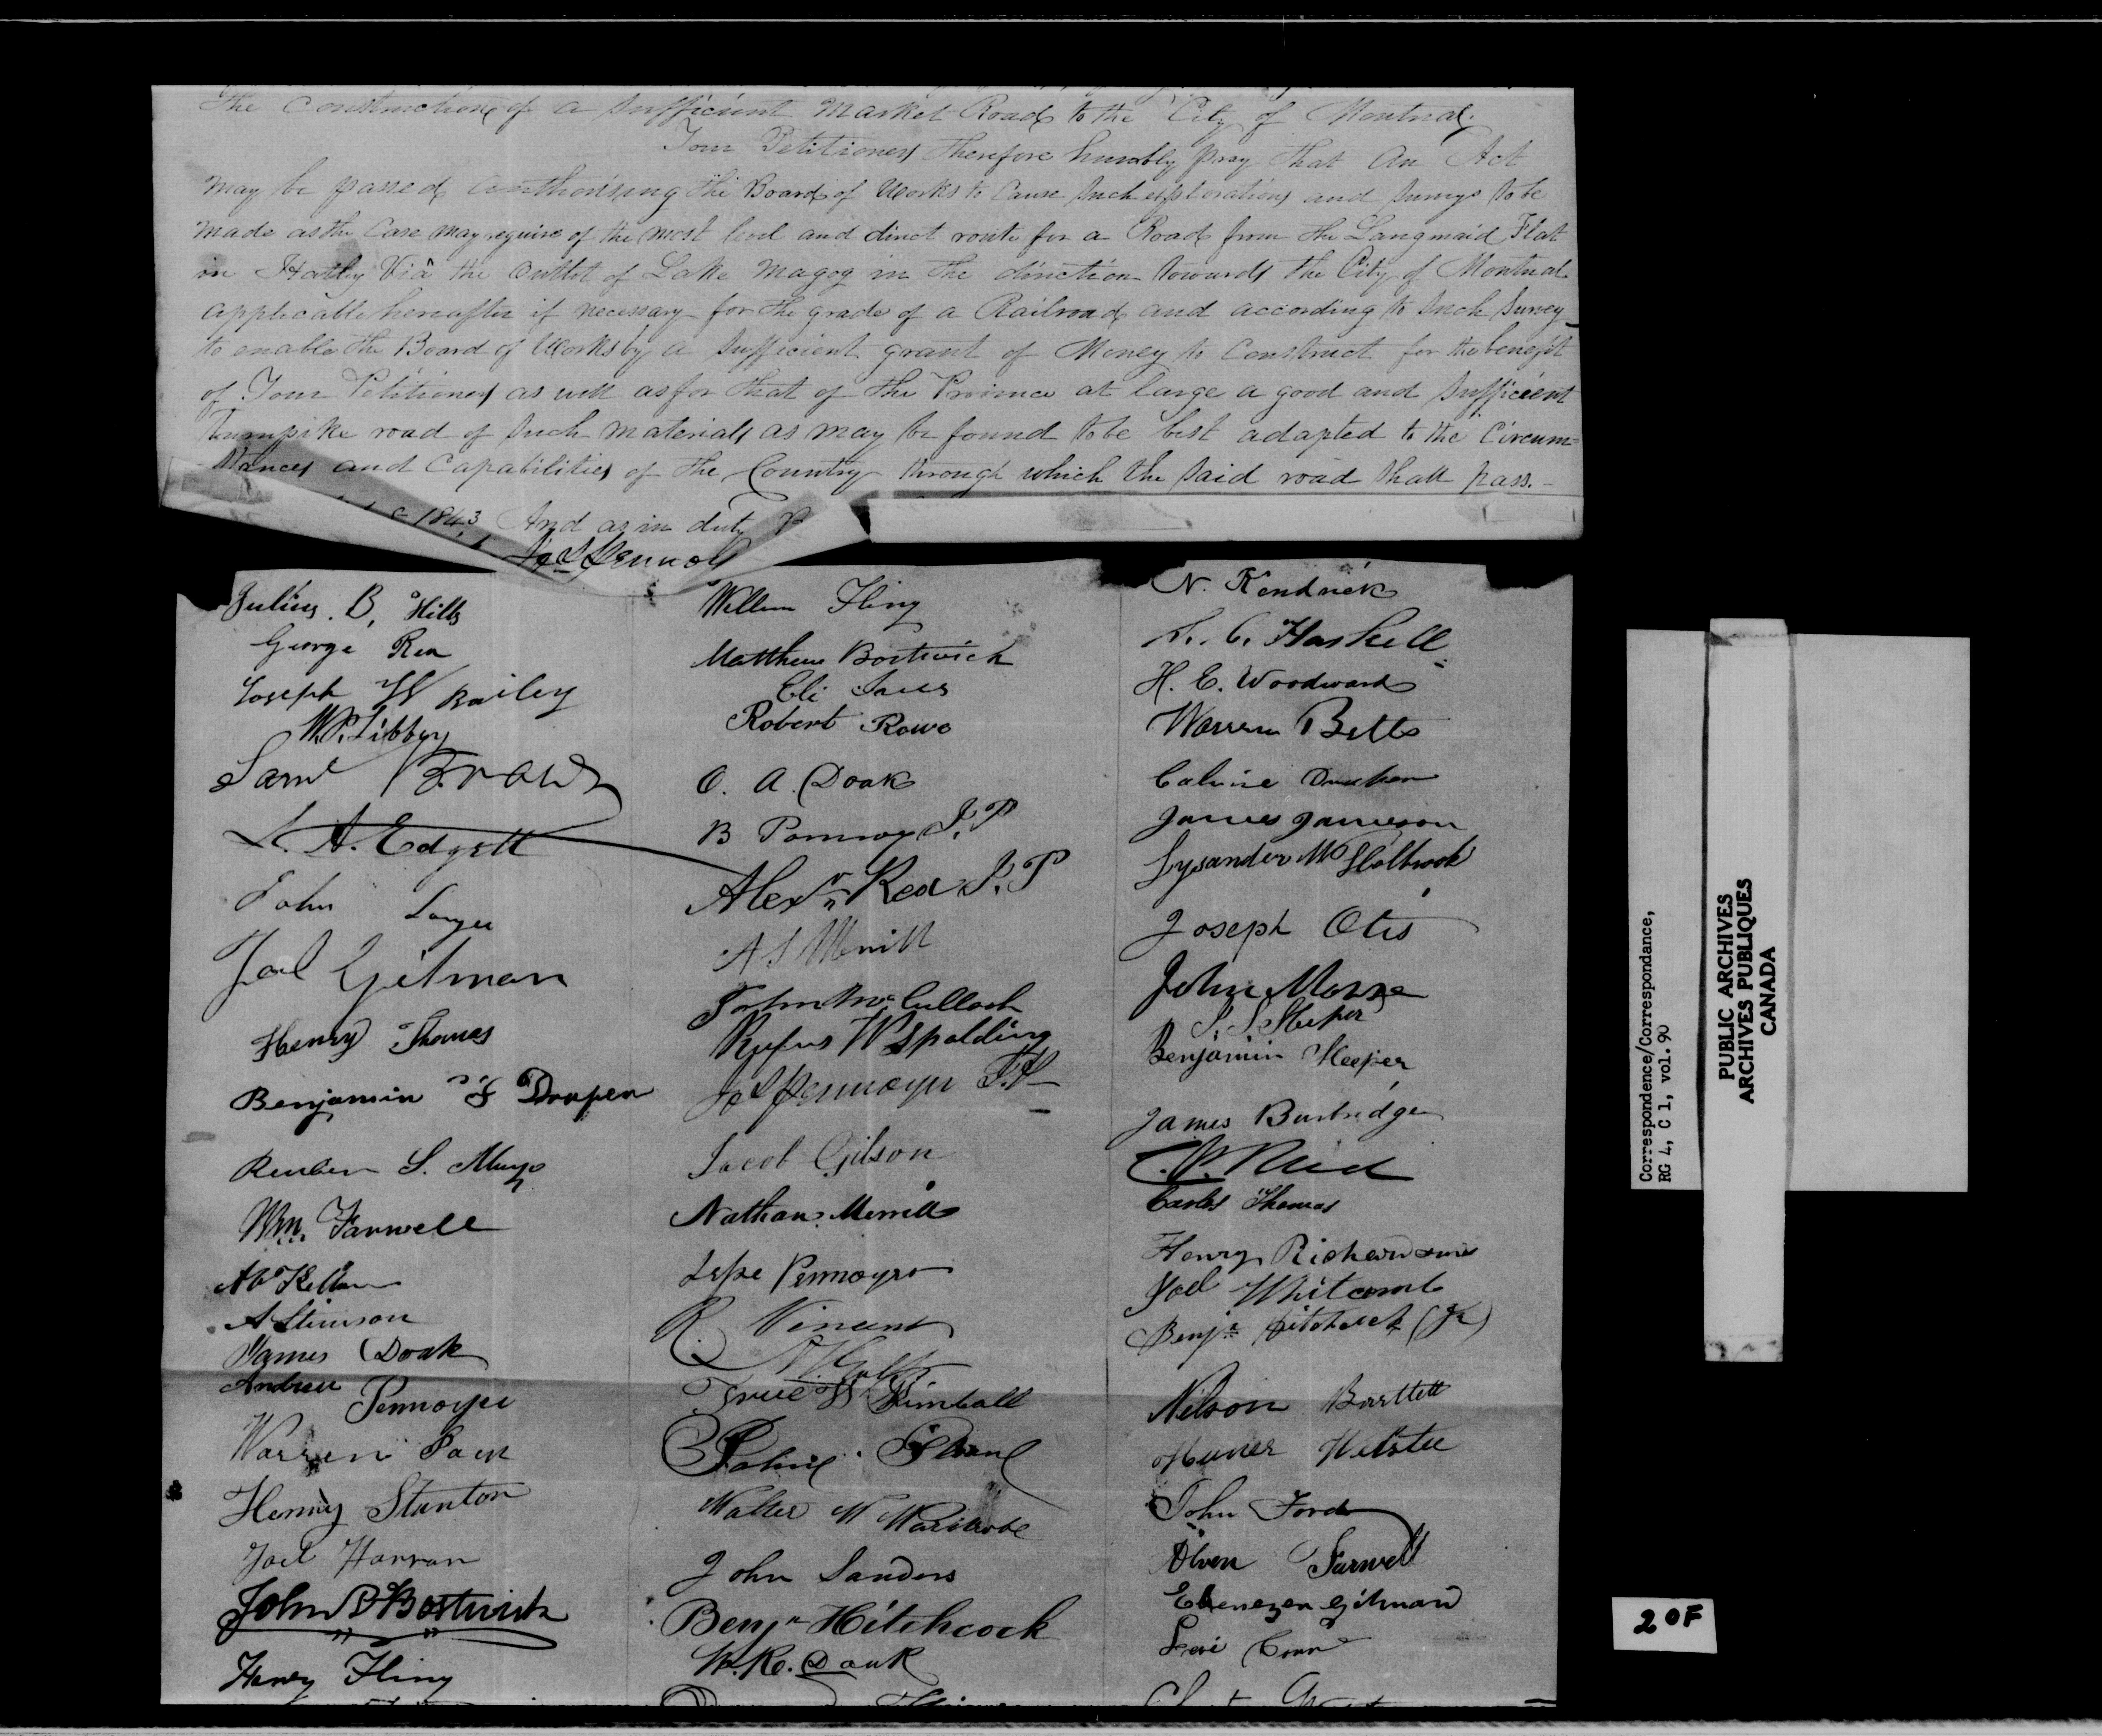 The Construction of a sufficient Market Road to the City of Montreal.
Your Petitioners therefore humbly pray that An Act
may be passed authorising the Board of Works to Cause such explorations and surveys to be
made as the Case may require of the most level and direct route for a Road from the Langmaid Flat
in Hatley Via the outlet of Lake Magog in the direction towards the City of Montreal
applicable hereafter if necessary for the grade of a Railroad and according to such survey
to enable the Board of Works by a sufficient grant of Money to Construct for the benefit
of Your Petitioners as well as for that of the Province at large a good and sufficient
turnpike road of such materials as may be found to be best adapted to the Circum=
stances and Capabilities of the Country through which the said road shall pass.-
1843 And as in duty
Julius. B. Hills
George Rea
Joseph W Bailey
W.P. Libbey
Saml Brown
L. A. Edgell
John
Joel Gilman
Henry Thomas
Benjamin F Draper
Reuben S.
Wm. Farwell
A Stimson
James Doak
Andrew Pennoyer
Warren
Henry Stanton
Joel Hanson
John B Bostwick
Henry Fling
Willem Fling
Matthew Bostwick
Eli
Robert Rowe
O. A. Doak
B Pomroy J.P
Alexr Rea J.P
A S Merrill
John McCulloch
Rufus W Spalding
Pennoyer J.P
Jacob Gilson
Nathan Merrill
Jesse Pennoyer
R. Vincent
True W Kimball
John
Walter W
John Sanders
Benjn Hitchcock
W. Ro. Doak
N. Kendrick
L. C. Haskell
H. E. Woodward
Warren Betts
Calvin
James Jameson
Lysander M Holbrook
Joseph Otis
John Morse
S. S. Sleeper
Benjamin Sleeper
James Burbridge
C. Reid
Carlos Thomas
Henry Richardson
Joel Whitcomb
Benjn Hitchcock (Jr)
Nelson Bartlett
Webster
John Ford
Farwell
Ebenezer Gilman
Levi
Correspondence/Correspondance,
RG 4, C 1, vol. 90
PUBLIC ARCHIVES
ARCHIVES PUBLIQUES
CANADA
2 OF